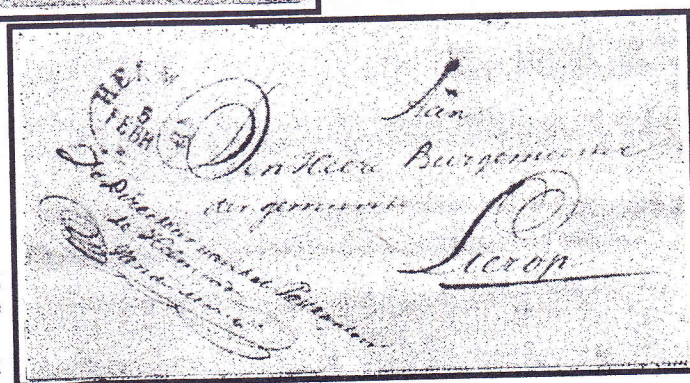 HEL
5
FEBR
Aan
Den Heer Burgemeester
der gemeente
Lierop
De Directeur van het Postkantoor
te Helmond